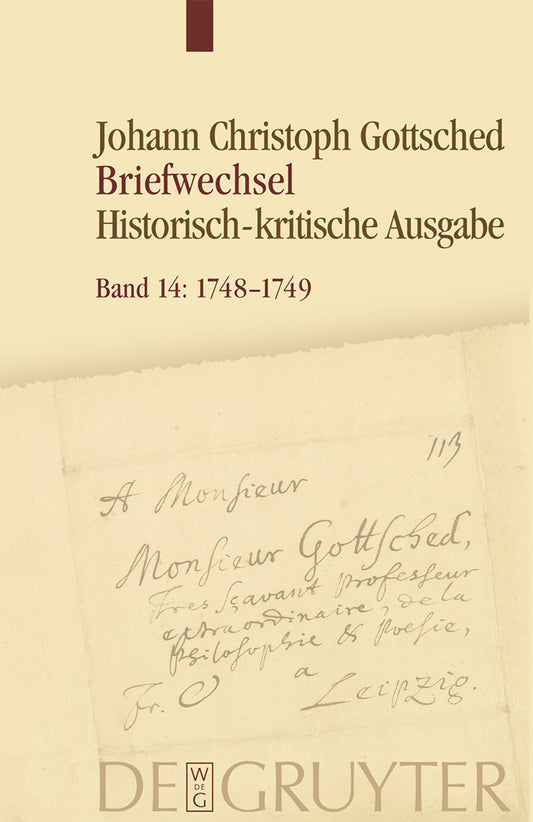 Johann Christoph Gottsched
Briefwechsel
Historisch-kritische Ausgabe
Band 14: 1748–1749
113
A Monsieur
Monsieur Gottsched,
Tres Sçavant Professeur
extraordinaire, de la
Philosophie & Poesie,
a
Fr.
Leipzig.
DE GRUYTER
W
DE
G